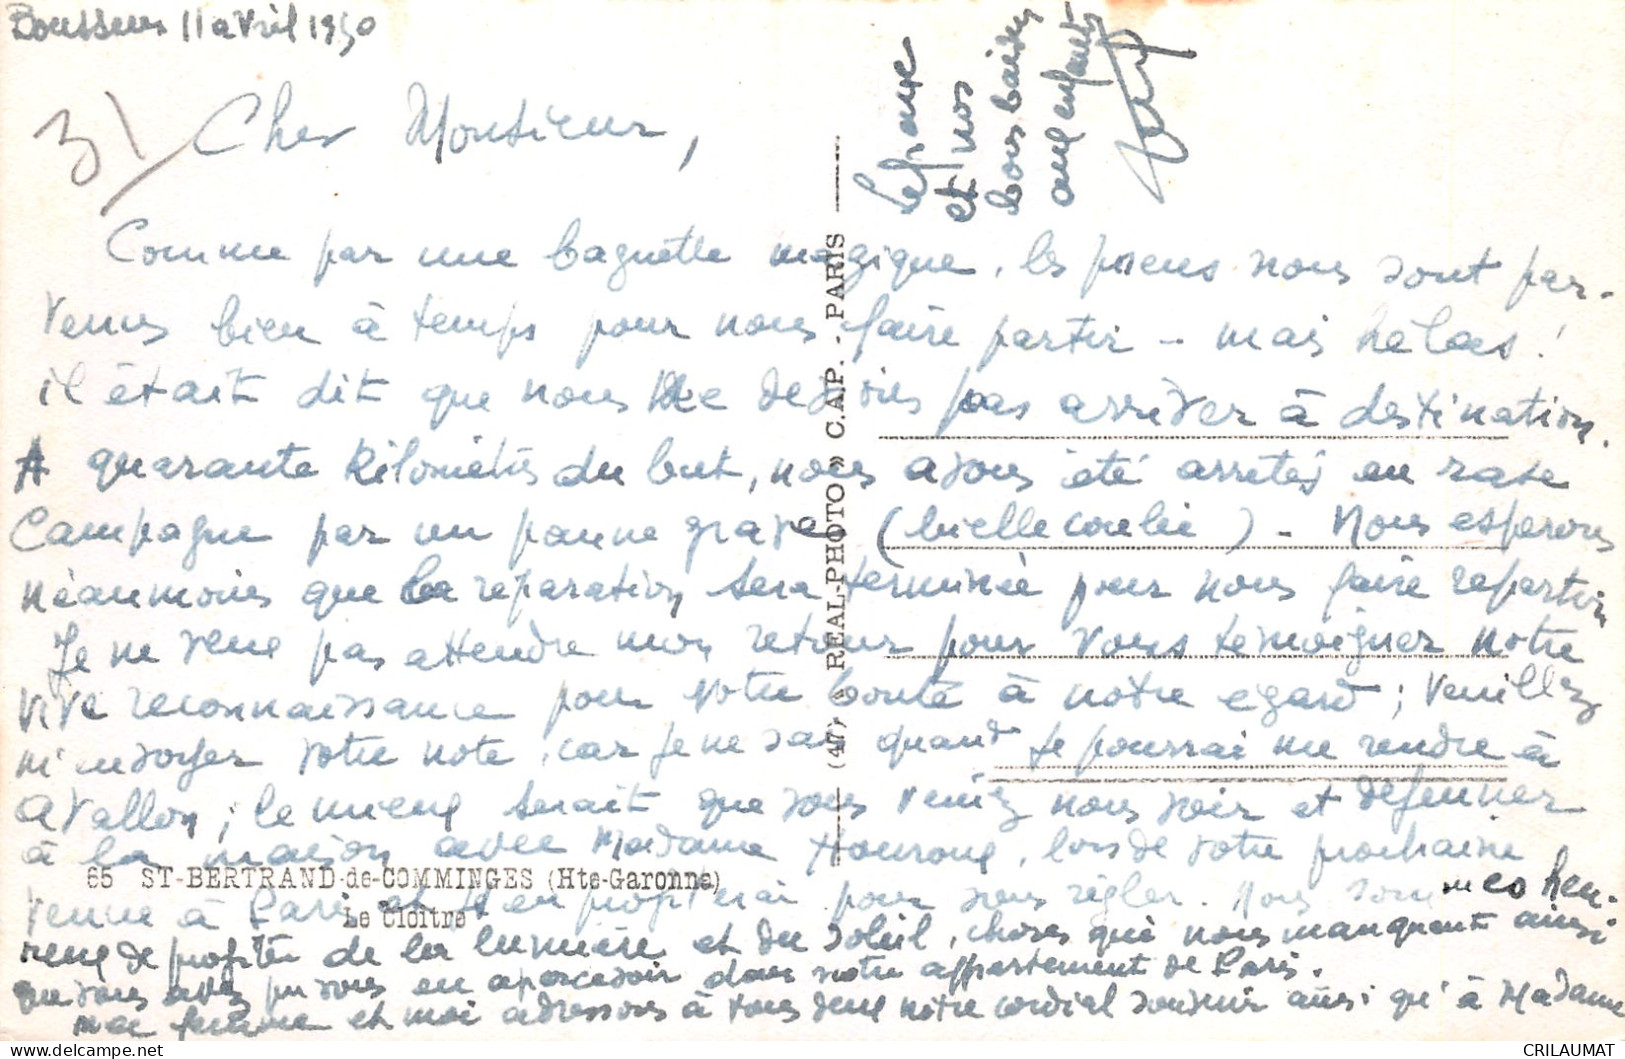 Boussens 11 avril 1950
31/ Cher Monsieur,
Comme par une baguette magique, les pneus nous sont par-
venus bien à temps pour nous faire partir - mais hélas!
il était dit que nous ne devions pas arriver à destination.
A quarante kilomètres du but, nous avons été arretés en rase
campagne par un panne grave (bielle coulée) - Nous esperons
néanmoins que la reparation sera terminée pour nous faire repartir
Je ne veux pas attendre mon retour pour vous temoigner notre
vive reconnaissance pour votre bonté à notre egard; Veuillez
m'envoyer votre note, car je ne sais quand je pourrai me rendre à
Avallon; le mieux serait que vous veniez nous voir et dejeuner
à la maison avec Madame, lors de votre prochaine
venue à Paris et j'en profiterai pour vous règler. Nous sommes heu-
reux de profiter de la lumière et du soleil, choses qui nous manquent ainsi
que vous avez pu vous en apercevoir dans notre appartement de Paris.
ma femme et moi adressons à vous deux notre cordial souvenir ainsi qu'à Madame
Lefranc
et nos
bons baisers
aux enfants
65 ST-BERTRAND-de-COMMINGES (Hte-Garonne)
Le Cloître
(47) « REAL-PHOTO » C.A.P. - PARIS
CRILAUMAT